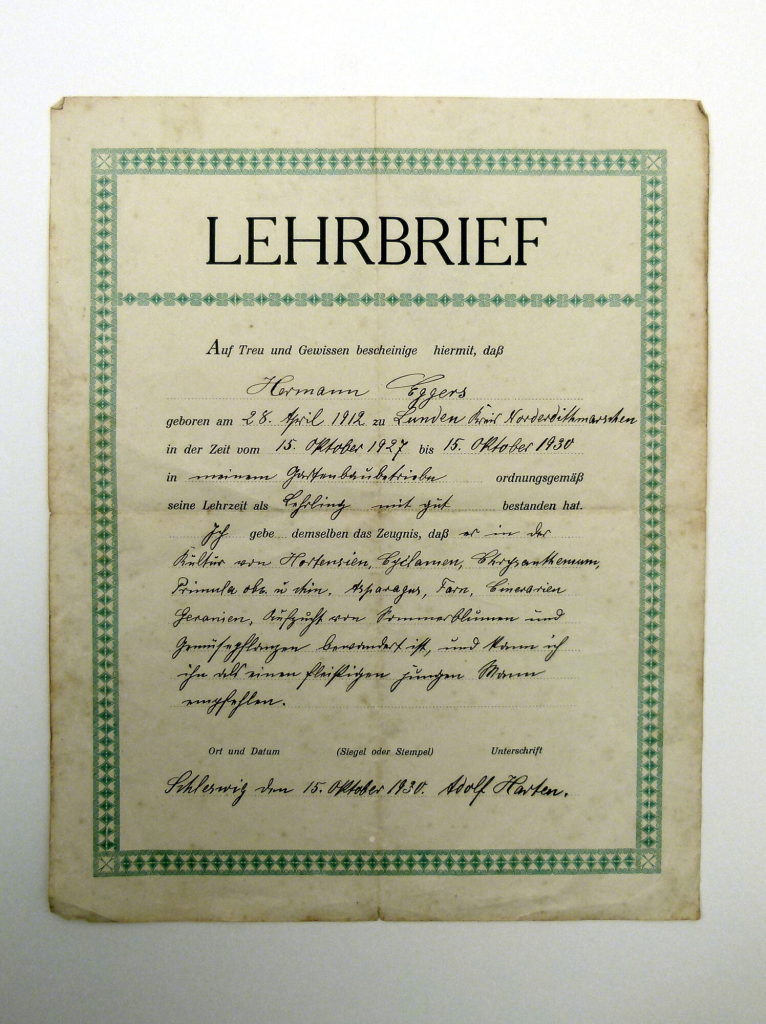 LEHRBRIEF
Auf Treu und Gewissen bescheinige hiermit, daß
Hermann Eggers
geboren am 28. April 1912 zu Lunden Kreis Norderdithmarschen
in der Zeit vom 15. Oktober 1927 bis 15. Oktober 1930
in meinem Gartenbaubetriebe ordnungsgemäß
seine Lehrzeit als Lehrling mit gut bestanden hat.
Ich gebe demselben das Zeugnis, daß er in der
Kultur von Hortensien, Cyclamen, Chrysanthemum,
Primula obc. u chin. Asparagus, Farn, Cinerarien
Geranien, Aufzucht von Sommerblumen und
Gemüsepflanzen bewandert ist, und kann ich
ihn als einen fleißigen jungen Mann
empfehlen.
Ort und Datum (Siegel oder Stempel) Unterschrift
Schleswig den 15. Oktober 1930. Adolf Harten.